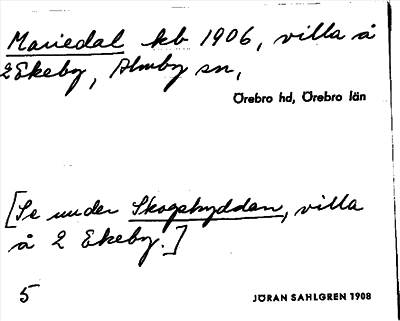 Mariedal kb 1906, villa å
2 Ekeby, Almby sn,
Örebro hd, Örebro län
[Se under Skogshyddan, villa
å 2 Ekeby.]
5
JÖRAN SAHLGREN 1908